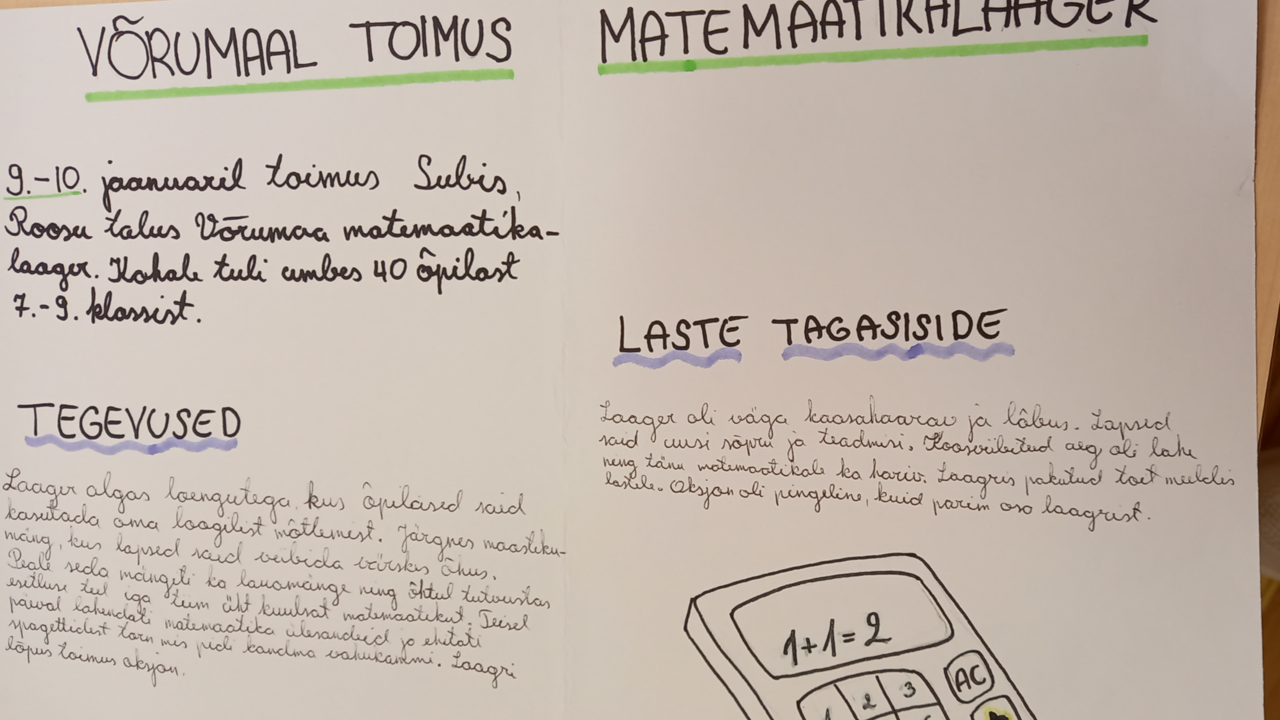 VÕRUMAAL TOIMUS MATEMAATIKALAAGER
9.-10. jaanuaril toimus Subis,
Roosu talus Võrumaa matemaatika-
laager. Kohale tuli umbes 40 õpilast
7.-9. klassist.
TEGEVUSED
Laager algas loengutega, kus õpilased said
kasutada oma loogilist mõtlemist. Järgnes maastiku-
mäng, kus lapsed said veibida värskes õhus.
Peale seda mängiti ka lauamänge ning õhtul tutvustas
esitluse teel iga tiim üht kuulsat matemaatikut. Teisel
päeval lahendati matemaatika ülesandeid ja ehitati
spagettidest torn mis pidi kandma vahukommi. Laagri
lõpus toimus oksjon.
LASTE TAGASISIDE
Laager oli väga kaasahaarav ja lõbus. Lapsed
said uusi sõpru ja teadmisi. Koosviibitud aeg oli lahe
ning tänu matemaatikale ka hariv. Laagris pakutud toit meeldis
lastele. Oksjon oli pingeline, kuid parim osa laagrist.
1+1=2
1 2 3
AC